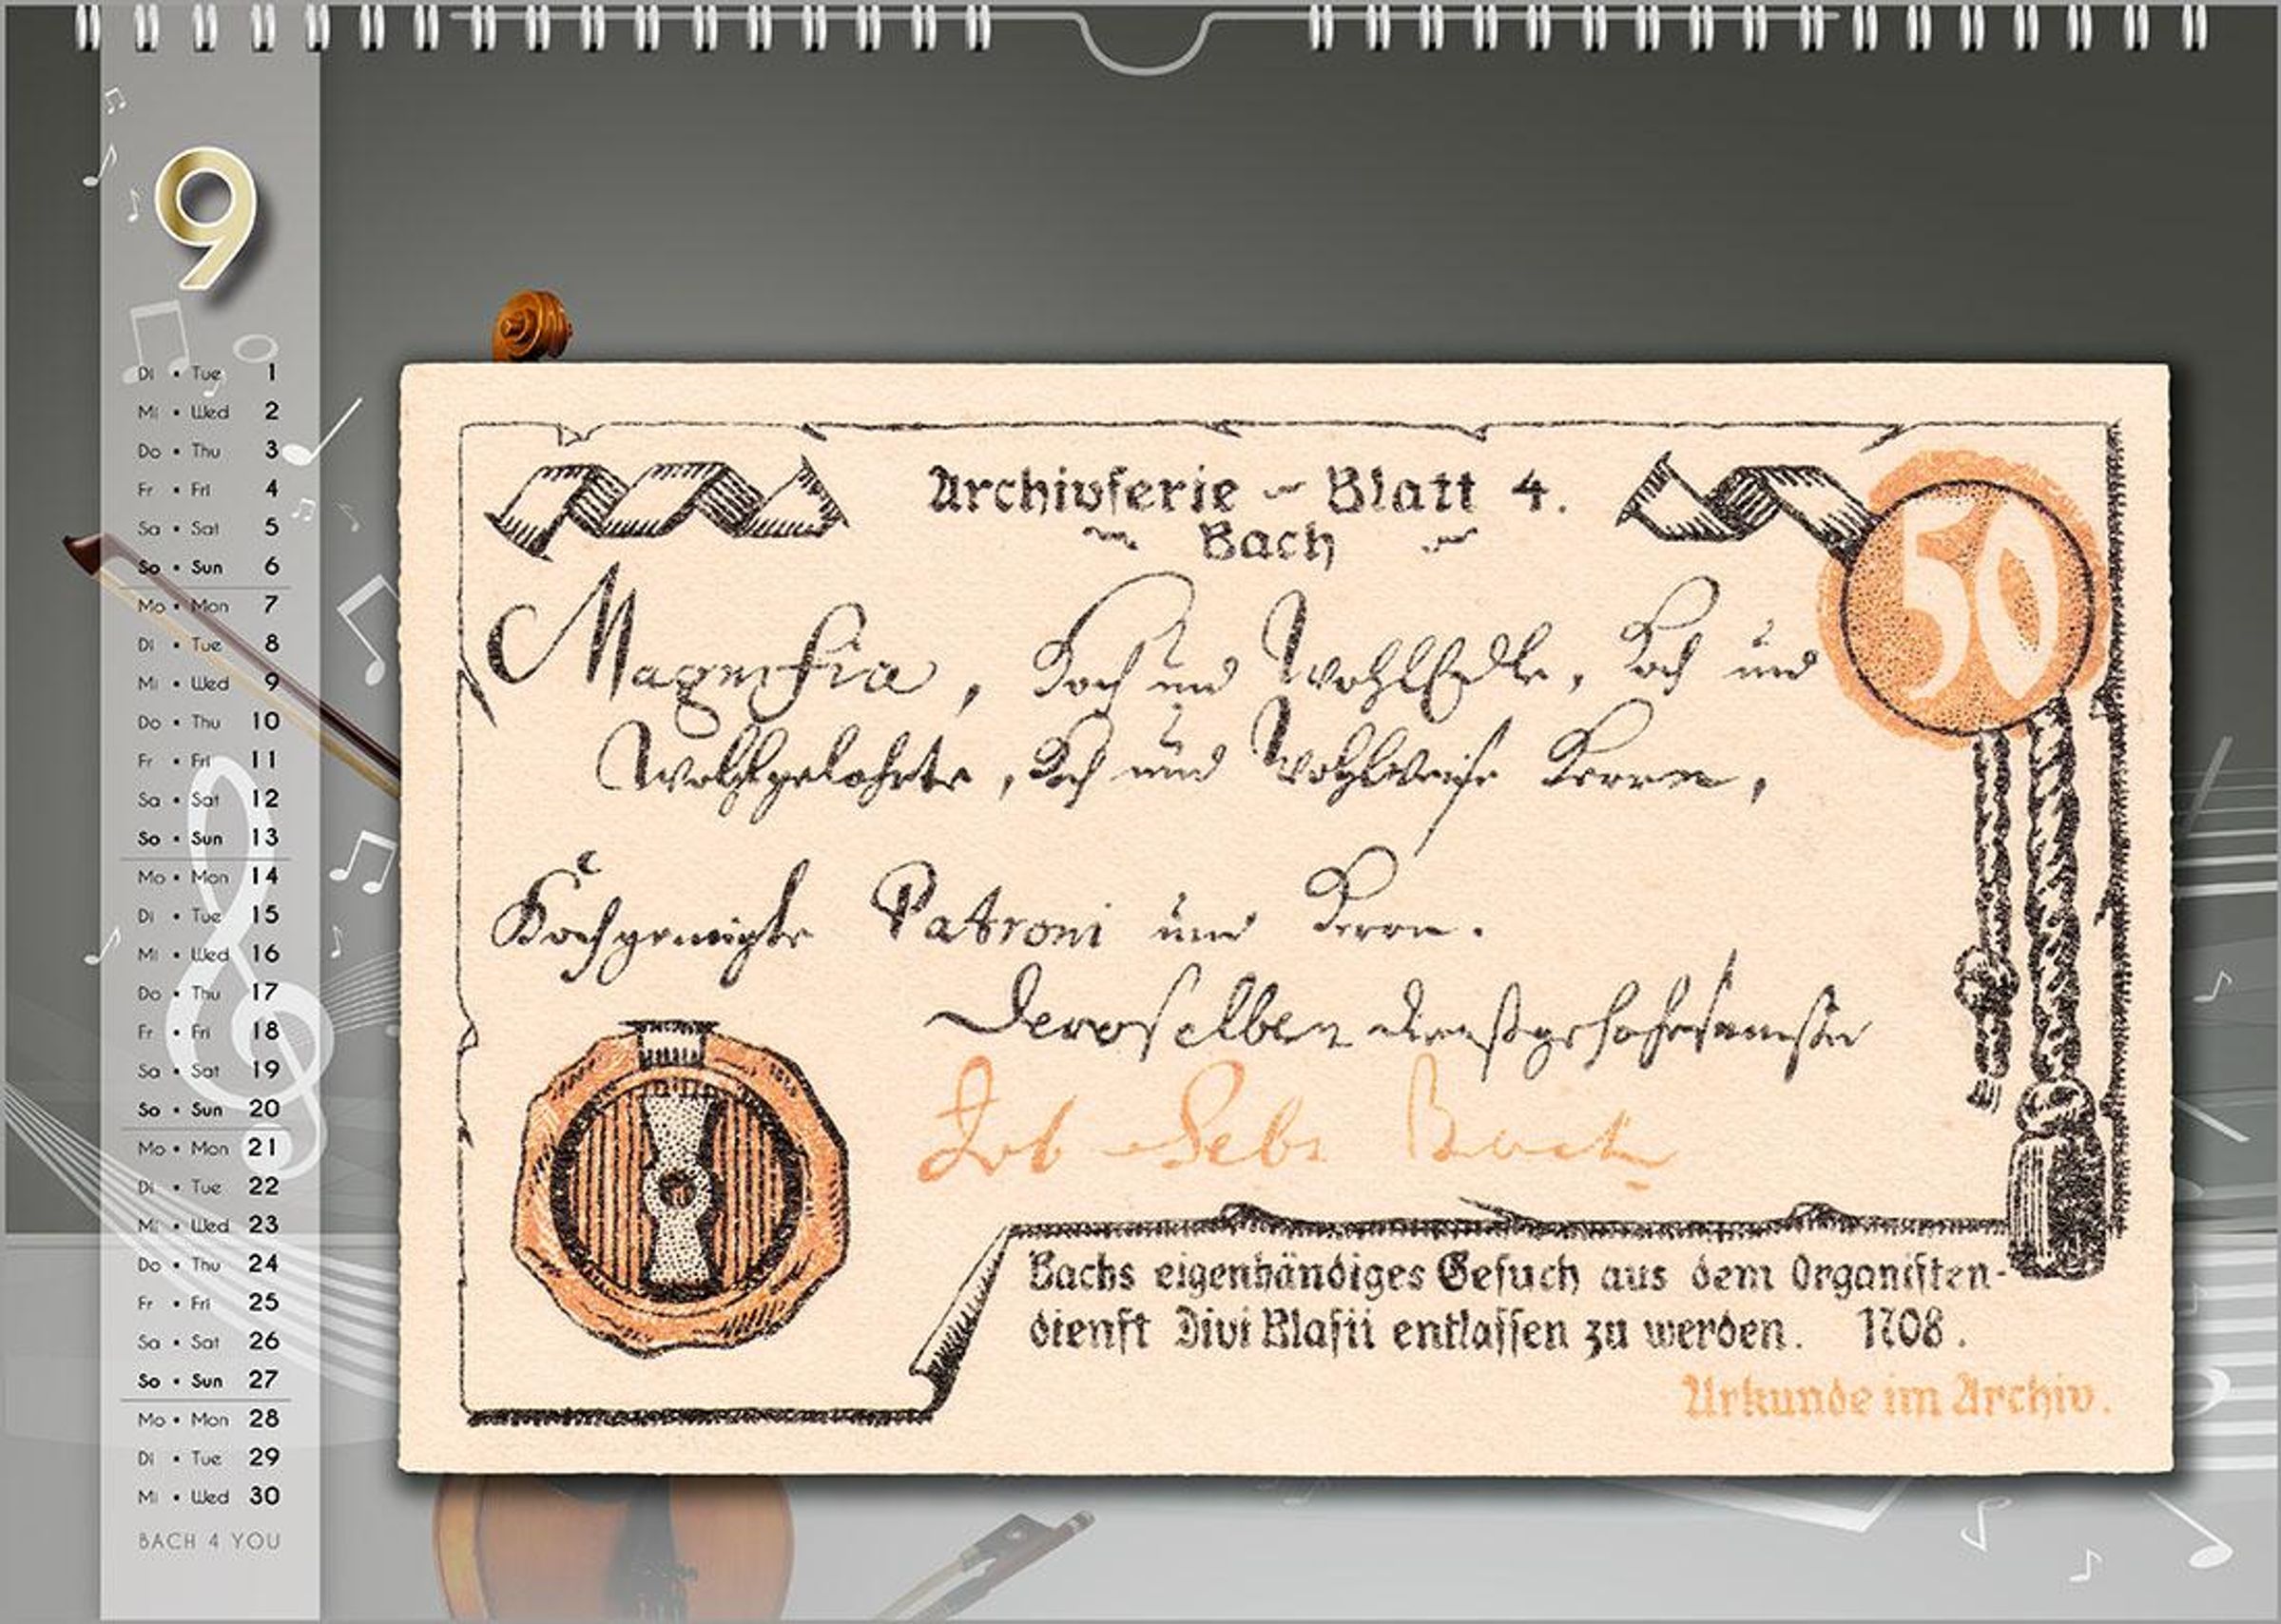 9
Di • Tue 1
Mi • Wed 2
Do • Thu 3
Fr • Fri 4
Sa • Sat 5
So • Sun 6
Mo • Mon 7
Di • Tue 8
Mi • Wed 9
Do • Thu 10
Fr • Fri 11
Sa • Sat 12
So • Sun 13
Mo • Mon 14
Di • Tue 15
Mi • Wed 16
Do • Thu 17
Fr • Fri 18
Sa • Sat 19
So • Sun 20
Mo • Mon 21
Di • Tue 22
Mi • Wed 23
Do • Thu 24
Fr • Fri 25
Sa • Sat 26
So • Sun 27
Mo • Mon 28
Di • Tue 29
Mi • Wed 30
BACH 4 YOU
Archivſerie - Blatt 4.
Bach
50
Hoch und WohlEdle, Hoch und
Wohlgelahrte, Hoch und Wohlweise Herren,
Hochgeneigte Patroni und Herren.
Deroselben dienstgehorsamster
Joh Sebs Bach
Bachs eigenhändiges Geſuch aus dem Organiſten-
dienſt Divi Blaſii entlaſſen zu werden. 1708.
Urkunde im Archiv.